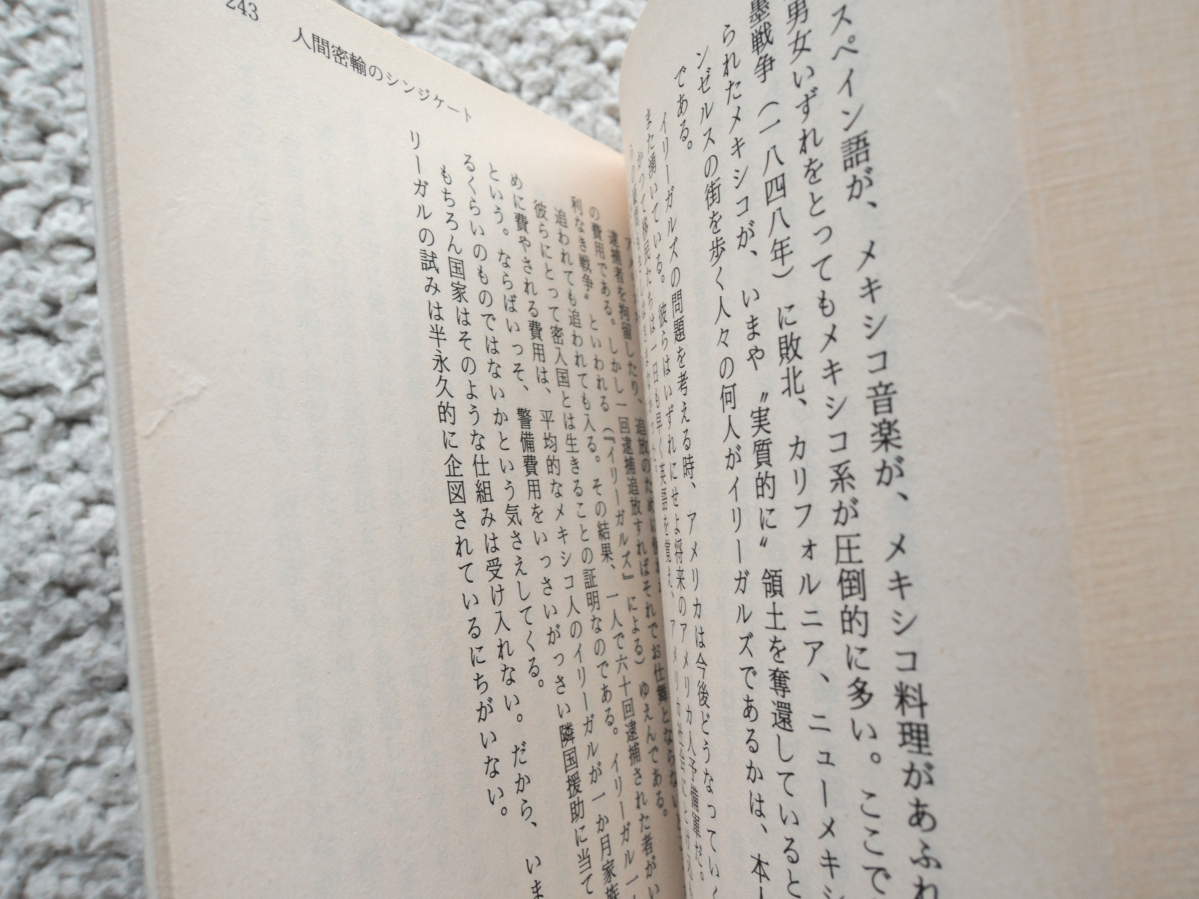 スペイン語が、メキシコ音楽が、メキシコ料理があふれ
男女いずれをとってもメキシコ系が圧倒的に多い。ここで
墨戦争(一八四八年)に敗北、カリフォルニア、ニューメキシ
られたメキシコが、いまや〝実質的に〟領土を奪還していると
ンゼルスの街を歩く人々の何人がイリーガルズであるかは、本人
である。
イリーガルズの問題を考える時、アメリカは今後どうなっていく
また湧いている。彼らはいずれにせよ将来のアメリカ人予備軍だ。
かつて移民たちは一日も早く英語を覚え、アメリカ
243
人間密輸のシンジケート
逮捕者を拘留したり、追放のために
の費用である。しかし一回逮捕追放すればそれでお仕舞とならない
利なき戦争〟といわれる(『イリーガルズ』による)ゆえんである。
追われても追われても入る。その結果、一人で六十回逮捕された者がい
彼らにとって密入国とは生きることの証明なのである。イリーガル一
めに費やされる費用は、平均的なメキシコ人のイリーガルが一か月家族
という。ならばいっそ、警備費用をいっさいがっさい隣国援助に当て
るくらいのものではないかという気さえしてくる。
もちろん国家はそのような仕組みは受け入れない。だから、いま
リーガルの試みは半永久的に企図されているにちがいない。